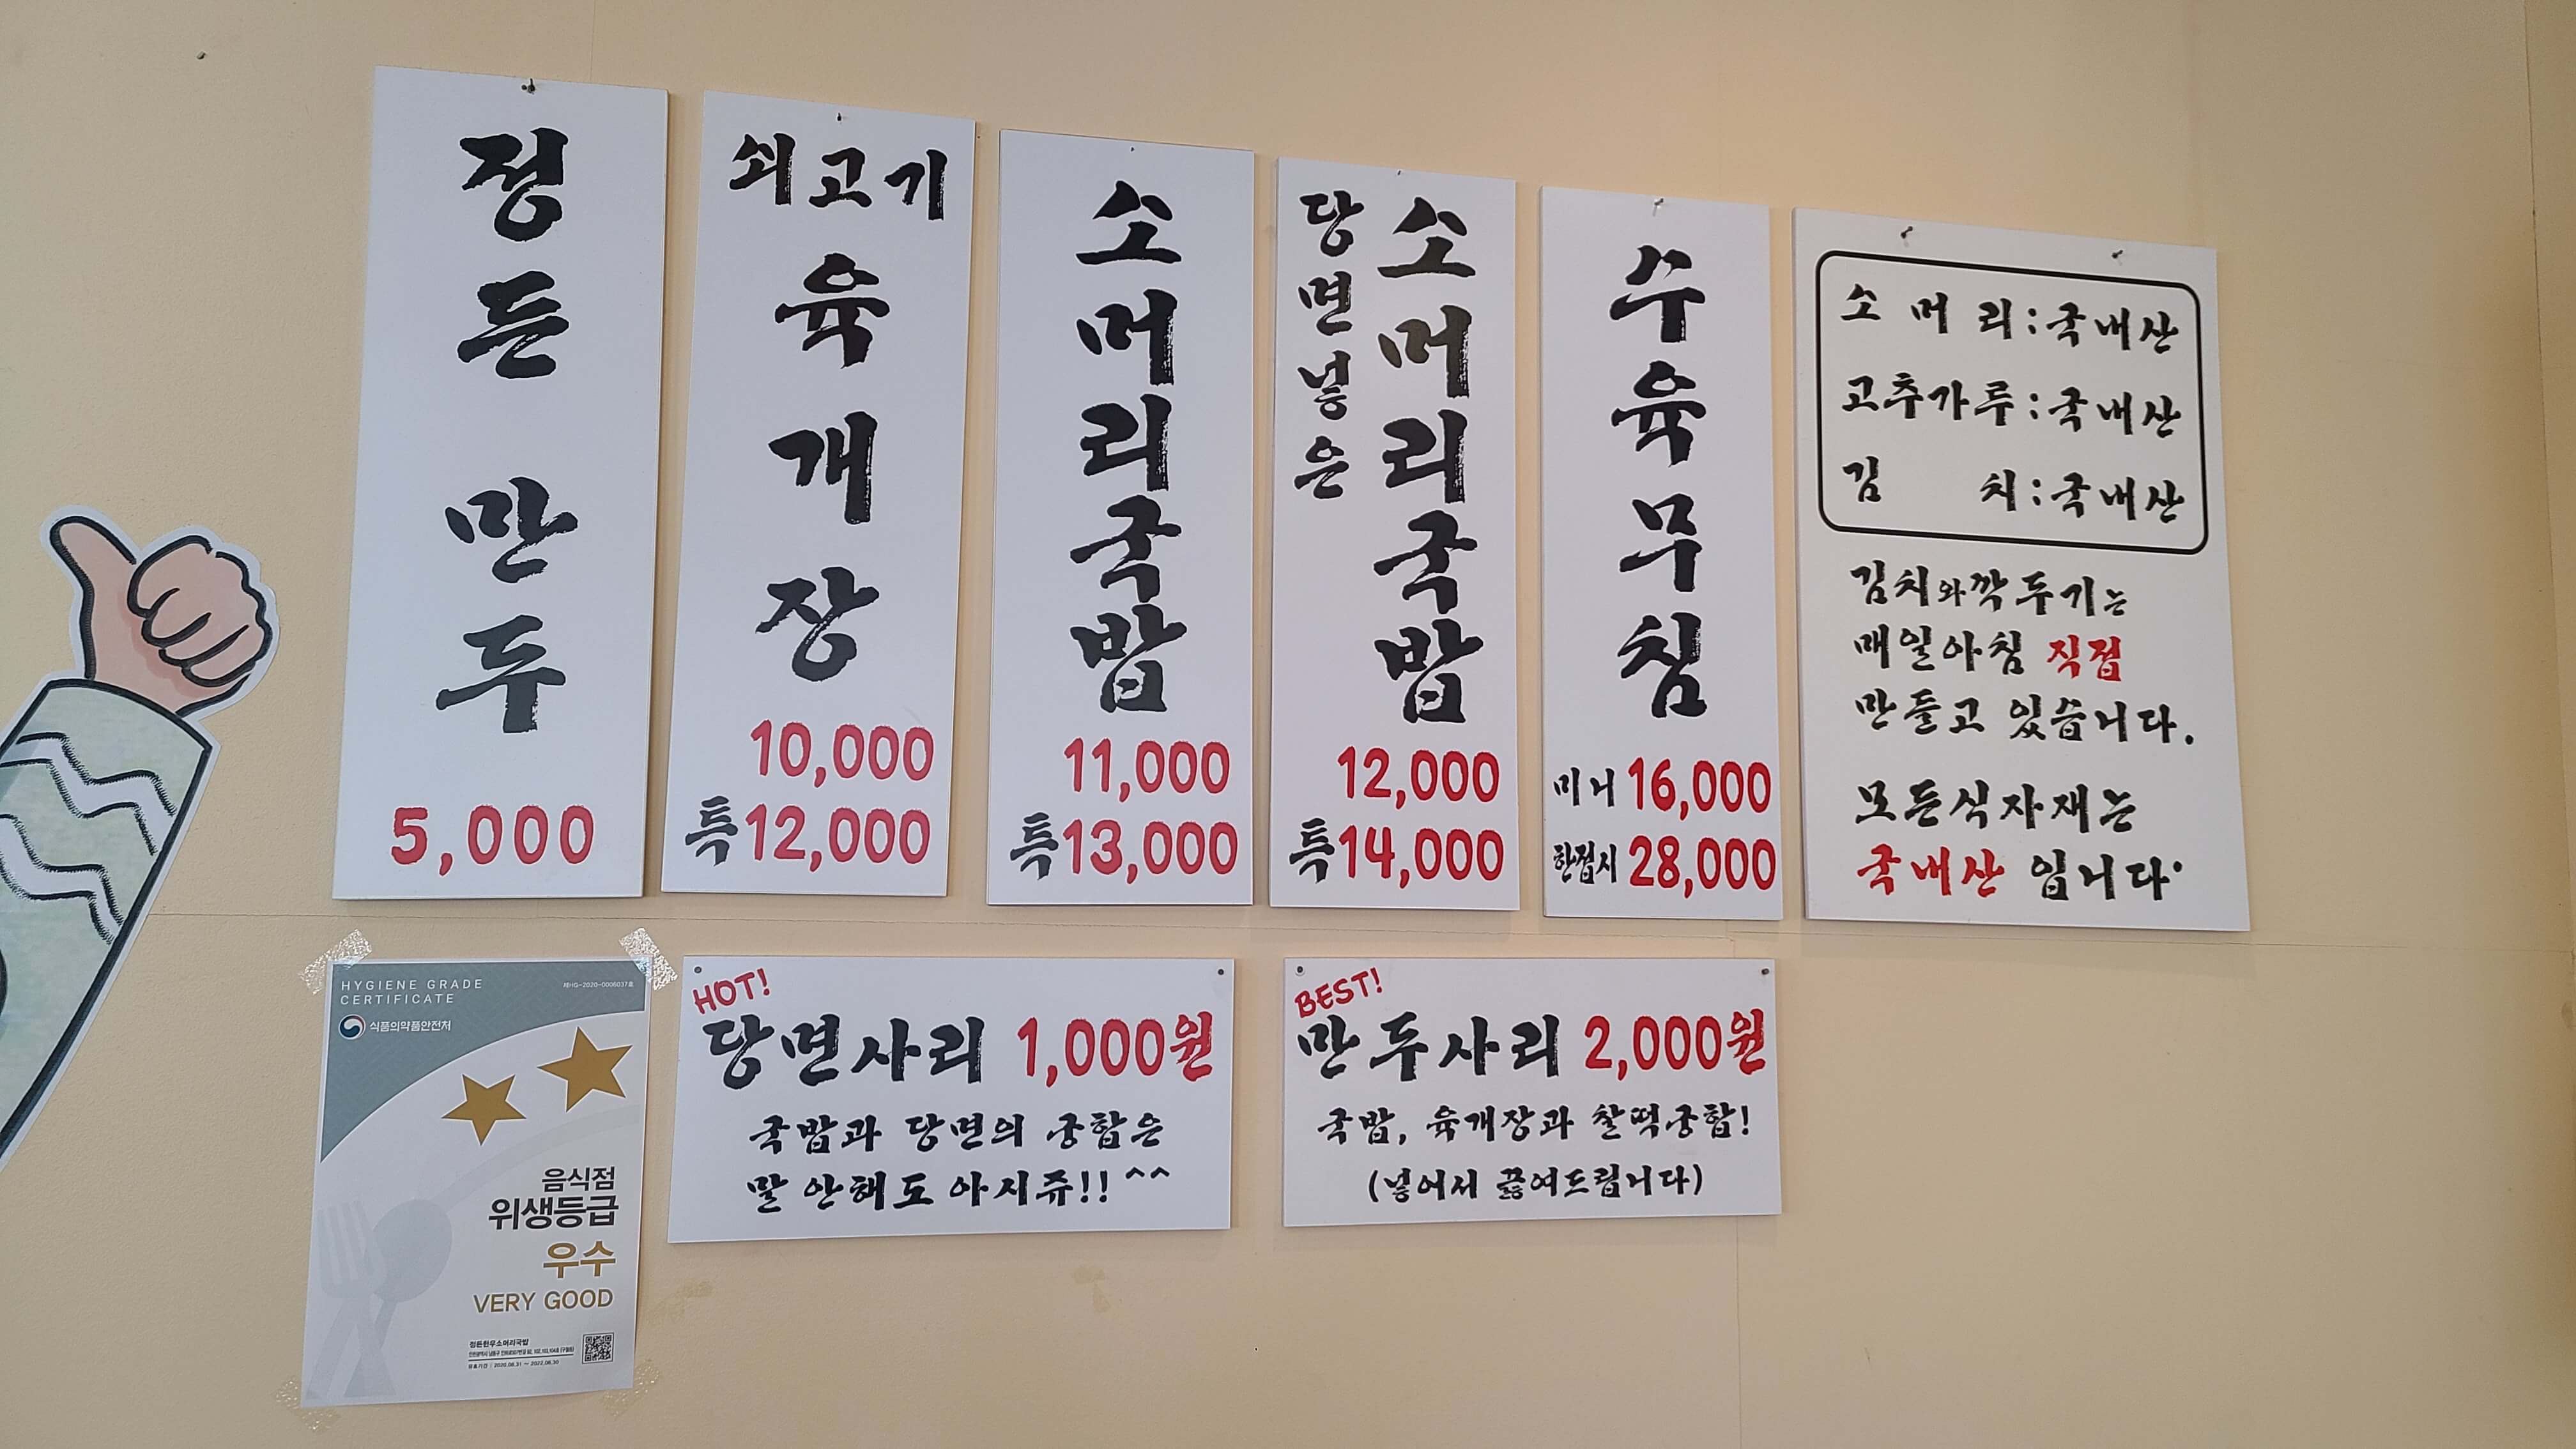 정든 만두
5,000
쇠고기
육개장
10,000
특 12,000
소머리국밥
11,000
특 13,000
당면넣은
소머리국밥
12,000
특 14,000
수육무침
미니 16,000
한접시 28,000
소머리:국내산
고추가루:국내산
김치:국내산
김치와깍두기는
매일아침 직접
만들고 있습니다.
모든식자재는
국내산 입니다.
HYGIENE GRADE
CERTIFICATE
제HG-2020-0006037호
식품의약품안전처
음식점
위생등급
우수
VERY GOOD
정든한우소머리국밥
유효기간 | 2020.08.31 ~ 2022.08.30
HOT!
당면사리 1,000원
국밥과 당면의 궁합은
말 안해도 아시쥬!! ^^
BEST!
만두사리 2,000원
국밥, 육개장과 찰떡궁합!
(넣어서 끓여드립니다)